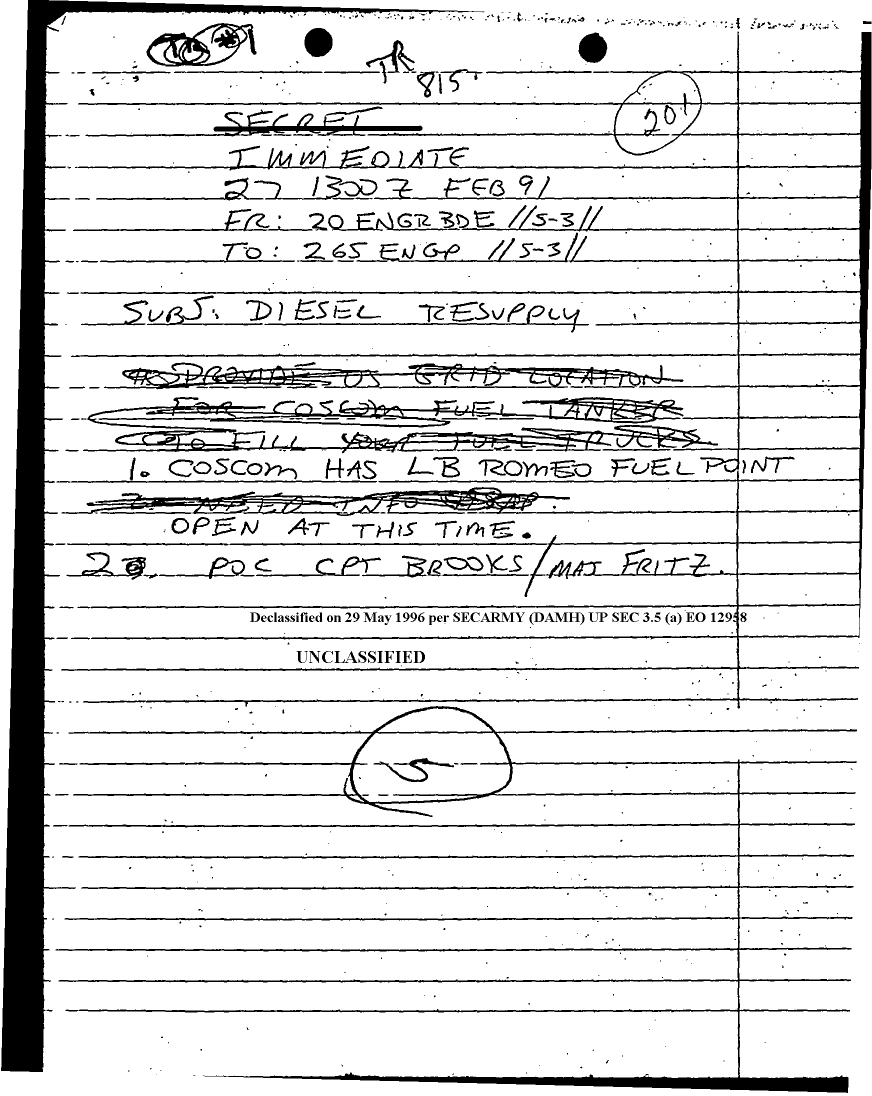 TR
815
201
SECRET
IMMEDIATE
27 1300 Z FEB 91
FR: 20 ENGR BDE //S-3//
TO: 265 ENGP //S-3//
SUBJ: DIESEL RESUPPLY
PROVIDE US GRID LOCATION
FOR COSCOM FUEL TANKER
TO FILL YOUR FUEL TRUCKS
1. COSCOM HAS LB ROMEO FUEL POINT
NEED INFO
OPEN AT THIS TIME.
2. POC CPT BROOKS/MAJ FRITZ.
Declassified on 29 May 1996 per SECARMY (DAMH) UP SEC 3.5 (a) EO 12958
UNCLASSIFIED
5